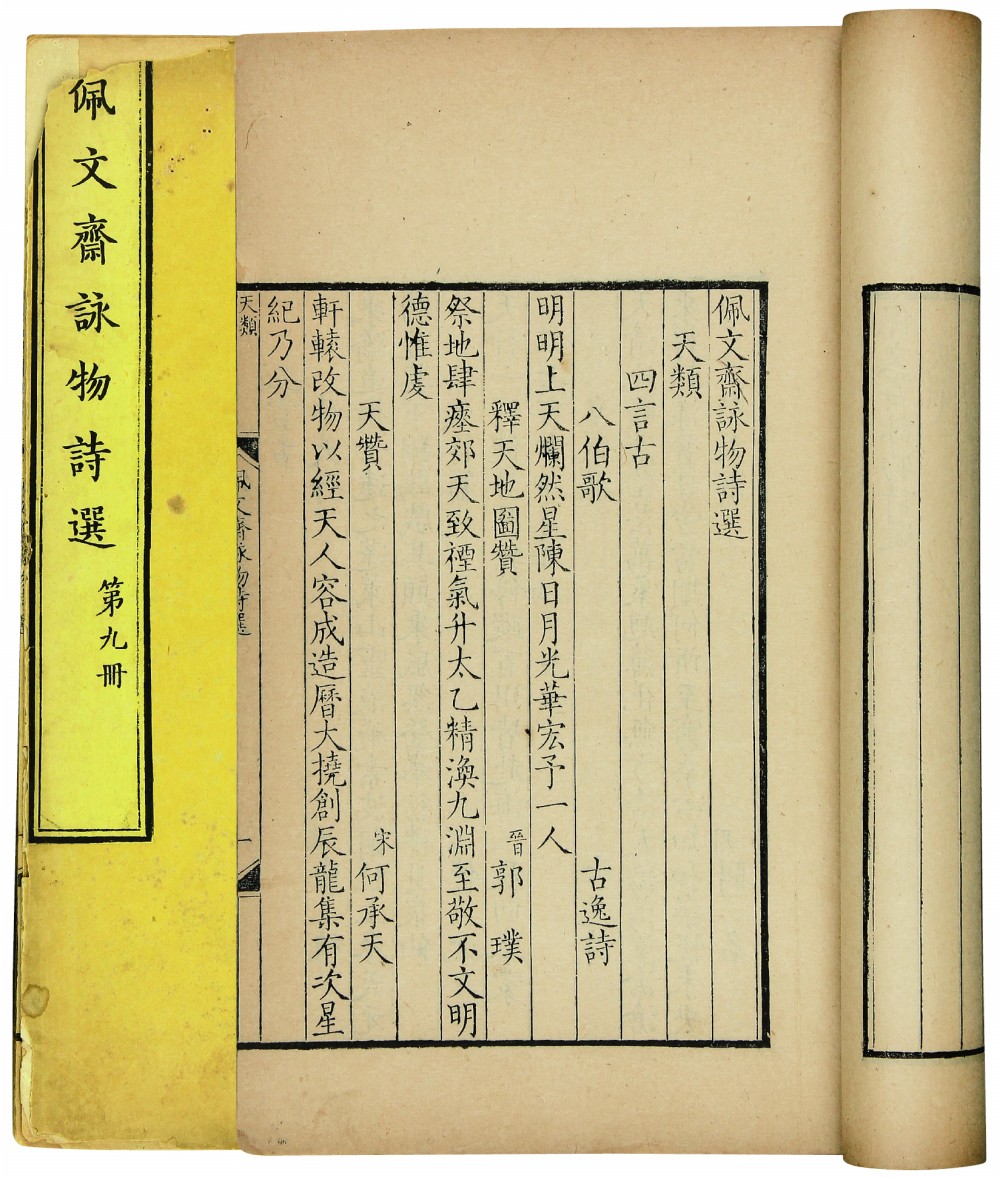 佩文齋詠物詩選
第九冊
佩文齋詠物詩選
天類
四言古
八伯歌 古逸詩
明明上天爛然星陳日月光華宏予一人
釋天地圖贊 晉 郭璞
祭地肆瘞郊天致禋氣升太乙精淪九淵至敬不文明
德惟虔
天贊 宋 何承天
軒轅改物以經天人容成造曆大撓創辰龍集有次星
紀乃分
天類
佩文齋詠物詩選
一